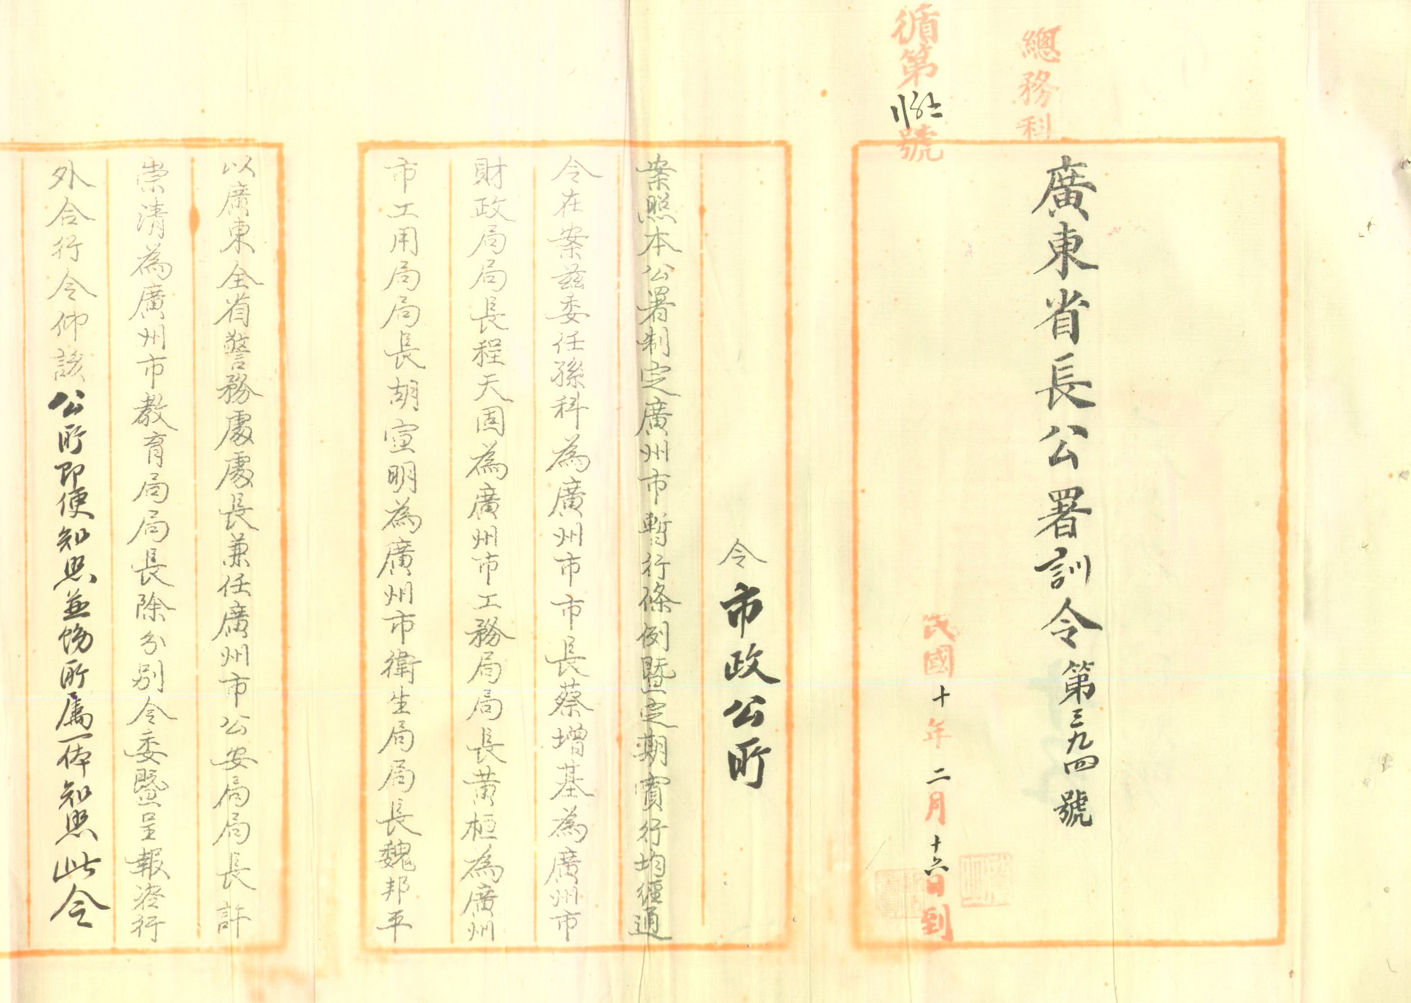 總務科
廣東省長公署訓令第三九四號
循第號
民國十年二月十六日到
令市政公所
案照本公署制定廣州市暫行條例暨定期實行均經通
令在案茲委任孫科為廣州市市長蔡增基為廣州市
財政局局長程天固為廣州市工務局局長黃桓為廣州
市工用局局長胡宣明為廣州市衛生局局長魏邦平
以廣東全省警務處處長兼任廣州市公安局局長許
崇清為廣州市教育局局長除分別令委暨呈報咨行
外合行令仰該公所即便知照並飭所屬一体知照此令